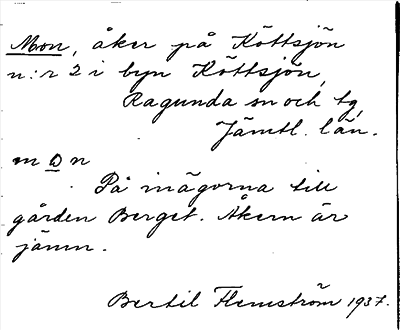 Mon, åker på Köttsjön
n:r 2 i byn Köttsjön,
Ragunda sn och tg,
Jämtl. län.
mon
På inägorna till
gården Berget. Åkern är
jämn.
Bertil Flemström 1937.